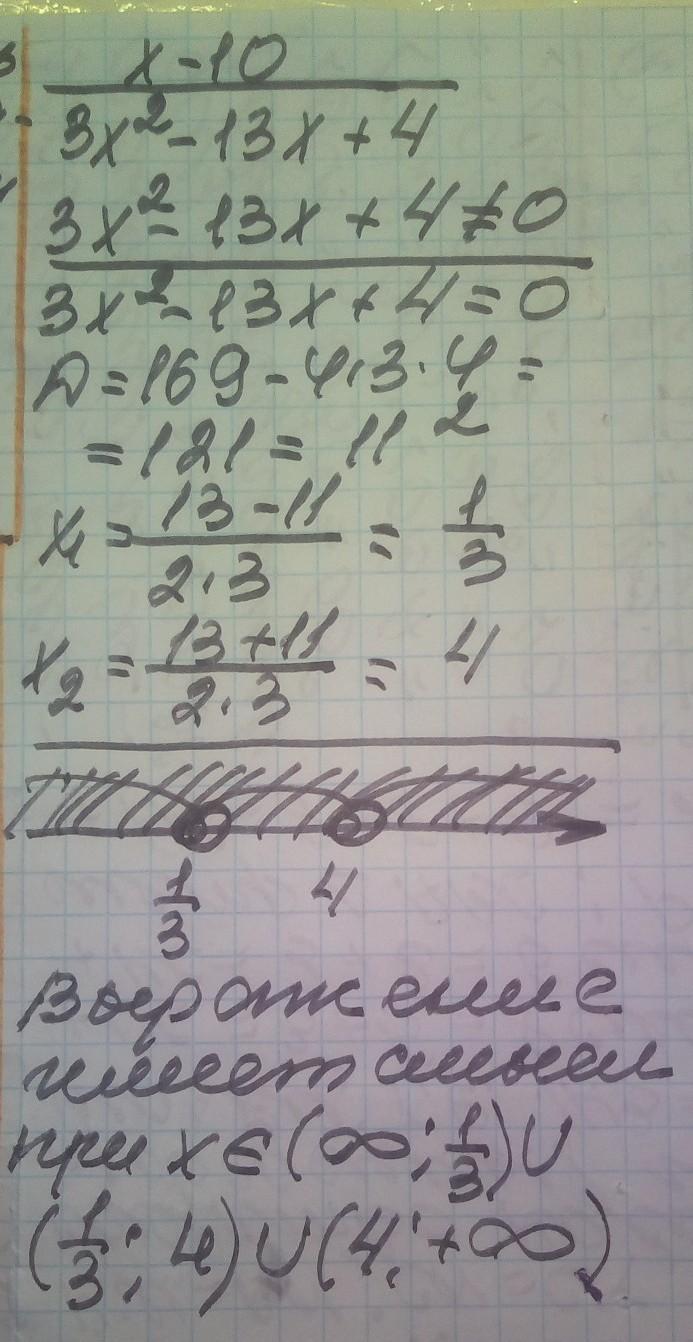 x-10
3x²-13x+4
3x²-13x+4≠0
3x²-13x+4=0
D=169-4·3·4=
=121=11²
x₁=(13-11)/(2·3)=1/3
x₂=(13+11)/(2·3)=4
1/3 4
Выражение
имеет смысл
при x∈(∞;1/3)∪
(1/3;4)∪(4;+∞)